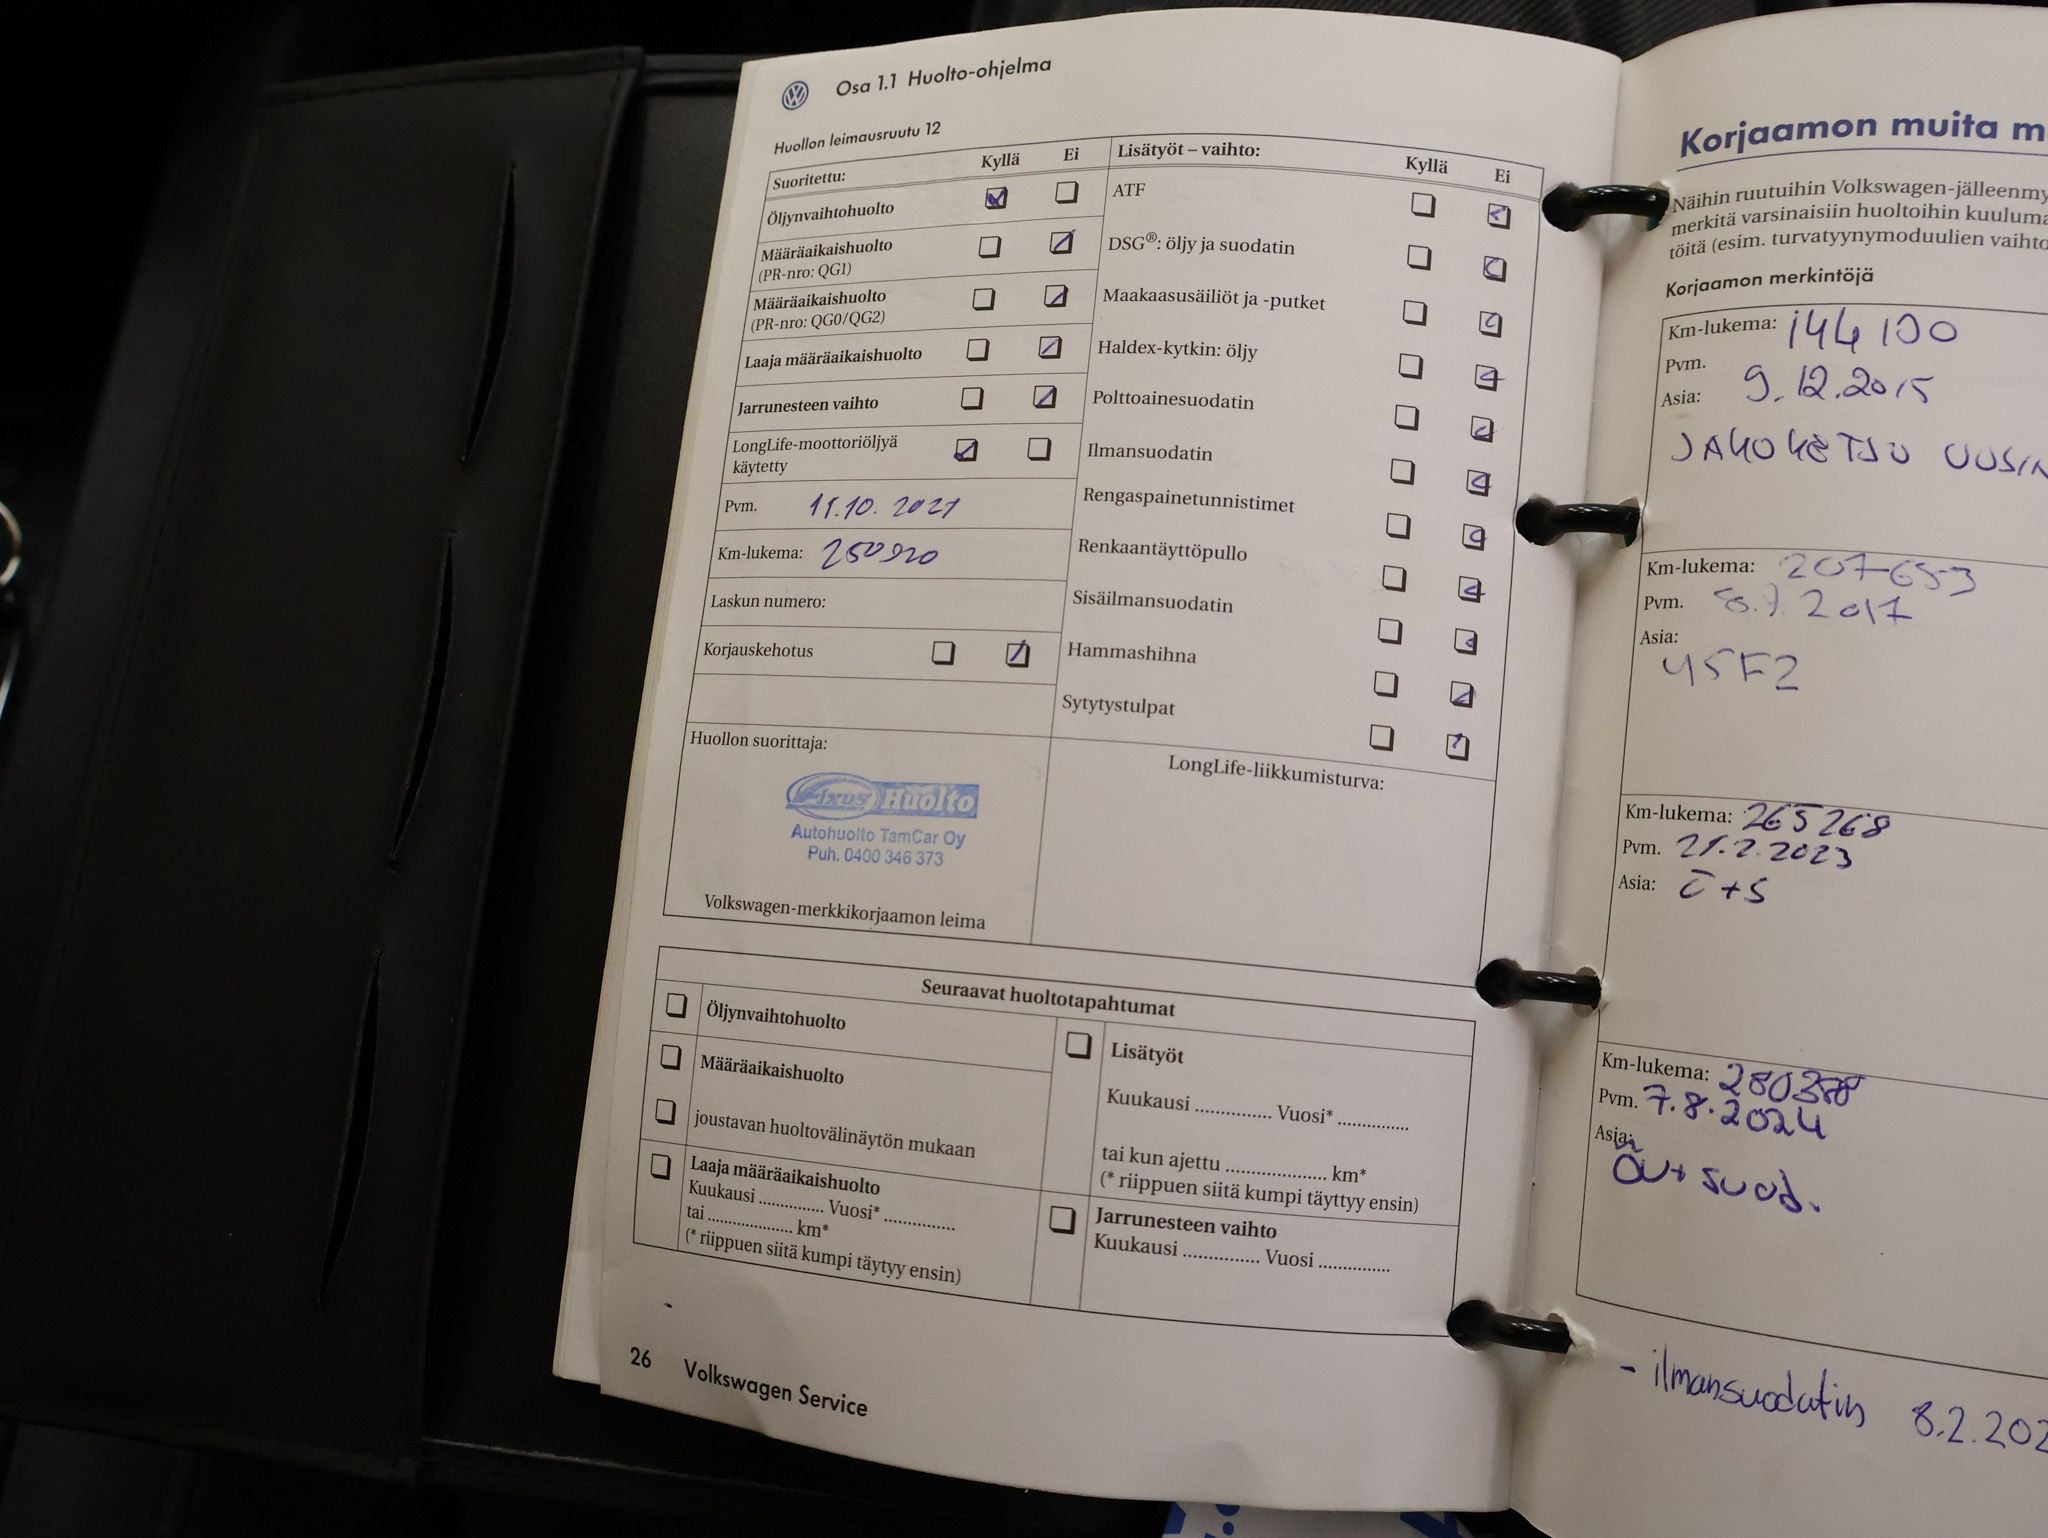 Osa 1.1 Huolto-ohjelma
Huollon leimausruutu 12
Suoritettu: Kyllä Ei
Öljynvaihtohuolto
Määräaikaishuolto
(PR-nro: QG1)
Määräaikaishuolto
(PR-nro: QG0/QG2)
Laaja määräaikaishuolto
Jarrunesteen vaihto
LongLife-moottoriöljyä
käytetty
Pvm. 11.10.2021
Km-lukema: 250920
Laskun numero:
Korjauskehotus
Huollon suorittaja:
Fixus Huolto
Autohuolto TamCar Oy
Puh. 0400 346 373
Volkswagen-merkkikorjaamon leima
Lisätyöt – vaihto: Kyllä Ei
ATF
DSG®: öljy ja suodatin
Maakaasusäiliöt ja -putket
Haldex-kytkin: öljy
Polttoainesuodatin
Ilmansuodatin
Rengaspainetunnistimet
Renkaantäyttöpullo
Sisäilmansuodatin
Hammashihna
Sytytystulpat
LongLife-liikkumisturva:
Seuraavat huoltotapahtumat
Öljynvaihtohuolto
Määräaikaishuolto
joustavan huoltovälinäytön mukaan
Laaja määräaikaishuolto
Kuukausi ............... Vuosi* ...............
tai .................... km*
(* riippuen siitä kumpi täytyy ensin)
Lisätyöt
Kuukausi ............... Vuosi* ...............
tai kun ajettu .................... km*
(* riippuen siitä kumpi täyttyy ensin)
Jarrunesteen vaihto
Kuukausi ............... Vuosi ...............
26 Volkswagen Service
Korjaamon muita m
Näihin ruutuihin Volkswagen-jälleenmy
merkitä varsinaisiin huoltoihin kuuluma
töitä (esim. turvatyynymoduulien vaihto
Korjaamon merkintöjä
Km-lukema: 144100
Pvm. 9.12.2015
Asia:
JAKOKETJU UUSIN
Km-lukema: 207653
Pvm. 8.7.2017
Asia:
45F2
Km-lukema: 265268
Pvm. 21.2.2023
Asia: Ö+S
Km-lukema: 280388
Pvm. 7.8.2024
Asia:
ÖV+ suod.
- ilmansuodatin 8.2.202